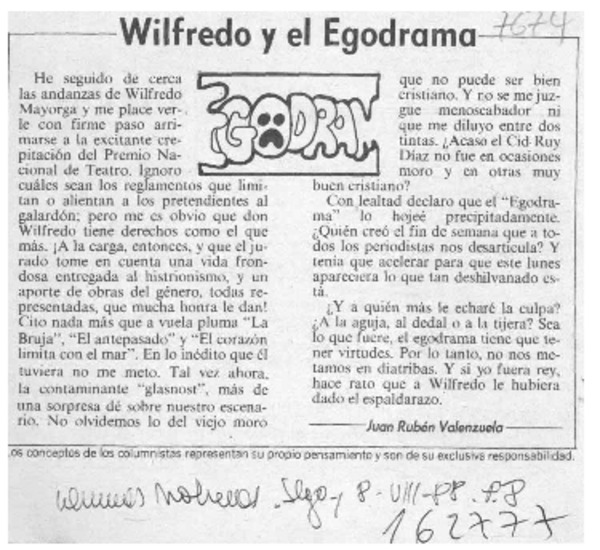 7674
Wilfredo y el Egodrama
He seguido de cerca
las andanzas de Wilfredo
Mayorga y me place ver-
le con firme paso arri-
marse a la excitante cre-
pitación del Premio Na-
cional de Teatro. Ignoro
cuáles sean los reglamentos que limi-
tan o alientan a los pretendientes al
galardón; pero me es obvio que don
Wilfredo tiene derechos como el que
más. ¡A la carga, entonces, y que el ju-
rado tome en cuenta una vida fron-
dosa entregada al histrionismo, y un
aporte de obras del género, todas re-
presentadas, que mucha honra le dan!
Cito nada más que a vuela pluma "La
Bruja", "El antepasado" y "El corazón
limita con el mar". En lo inédito que él
tuviera no me meto. Tal vez ahora,
la contaminante "glasnost", más de
una sorpresa dé sobre nuestro escena-
rio. No olvidemos lo del viejo moro
EGODRAM
que no puede ser bien
cristiano. Y no se me juz-
gue menoscabador ni
que me diluyo entre dos
tintas. ¿Acaso el Cid Ruy
Díaz no fue en ocasiones
moro y en otras muy
buen cristiano?
Con lealtad declaro que el "Egodra-
ma" lo hojeé precipitadamente.
¿Quién creó el fin de semana que a to-
dos los periodistas nos desarticula? Y
tenía que acelerar para que este lunes
apareciera lo que tan deshilvanado es-
tá.
¿Y a quién más le echaré la culpa?
¿A la aguja, al dedal o a la tijera? Sea
lo que fuere, el egodrama tiene que te-
ner virtudes. Por lo tanto, no nos me-
tamos en diatribas. Y si yo fuera rey,
hace rato que a Wilfredo le hubiera
dado el espaldarazo.
Juan Rubén Valenzuela
os conceptos de los columnistas representan su propio pensamiento y son de su exclusiva responsabilidad.
Stgo, 8-VIII-88 p.8
162777